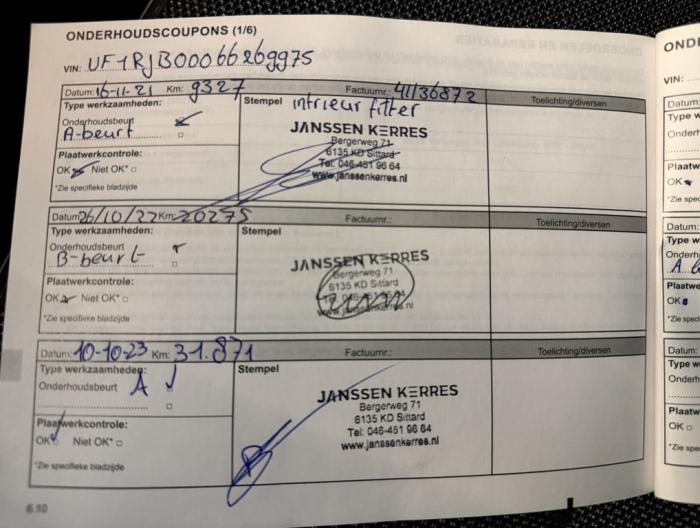 ONDERHOUDSCOUPONS (1/6)
VIN: UF1RJB00066269975
Datum: 16-11-21 Km: 9327 Factuurnr.: 41136872
Type werkzaamheden: Stempel intrieur filter Toelichting/diversen
Onderhoudsbeurt
A-beurt
JANSSEN KERRES
Bergerweg 71
6135 KD Sittard
Tel: 046-451 96 64
www.janssenkerres.nl
Plaatwerkcontrole:
OK Niet OK*
*Zie specifieke bladzijde
Datum 26/10/22 Km 20275 Factuurnr.:
Type werkzaamheden: Stempel Toelichting/diversen
Onderhoudsbeurt
B-beurt
JANSSEN KERRES
Bergerweg 71
6135 KD Sittard
Plaatwerkcontrole:
OK Niet OK*
*Zie specifieke bladzijde
Datum: 10-10-23 Km: 31.871 Factuurnr.:
Type werkzaamheden: Stempel Toelichting/diversen
Onderhoudsbeurt A
JANSSEN KERRES
Bergerweg 71
6135 KD Sittard
Tel: 046-451 96 64
www.janssenkerres.nl
Plaatwerkcontrole:
OK Niet OK*
*Zie specifieke bladzijde
6.10
VIN:
Datum:
OK
Datum:
OK
Datum:
OK